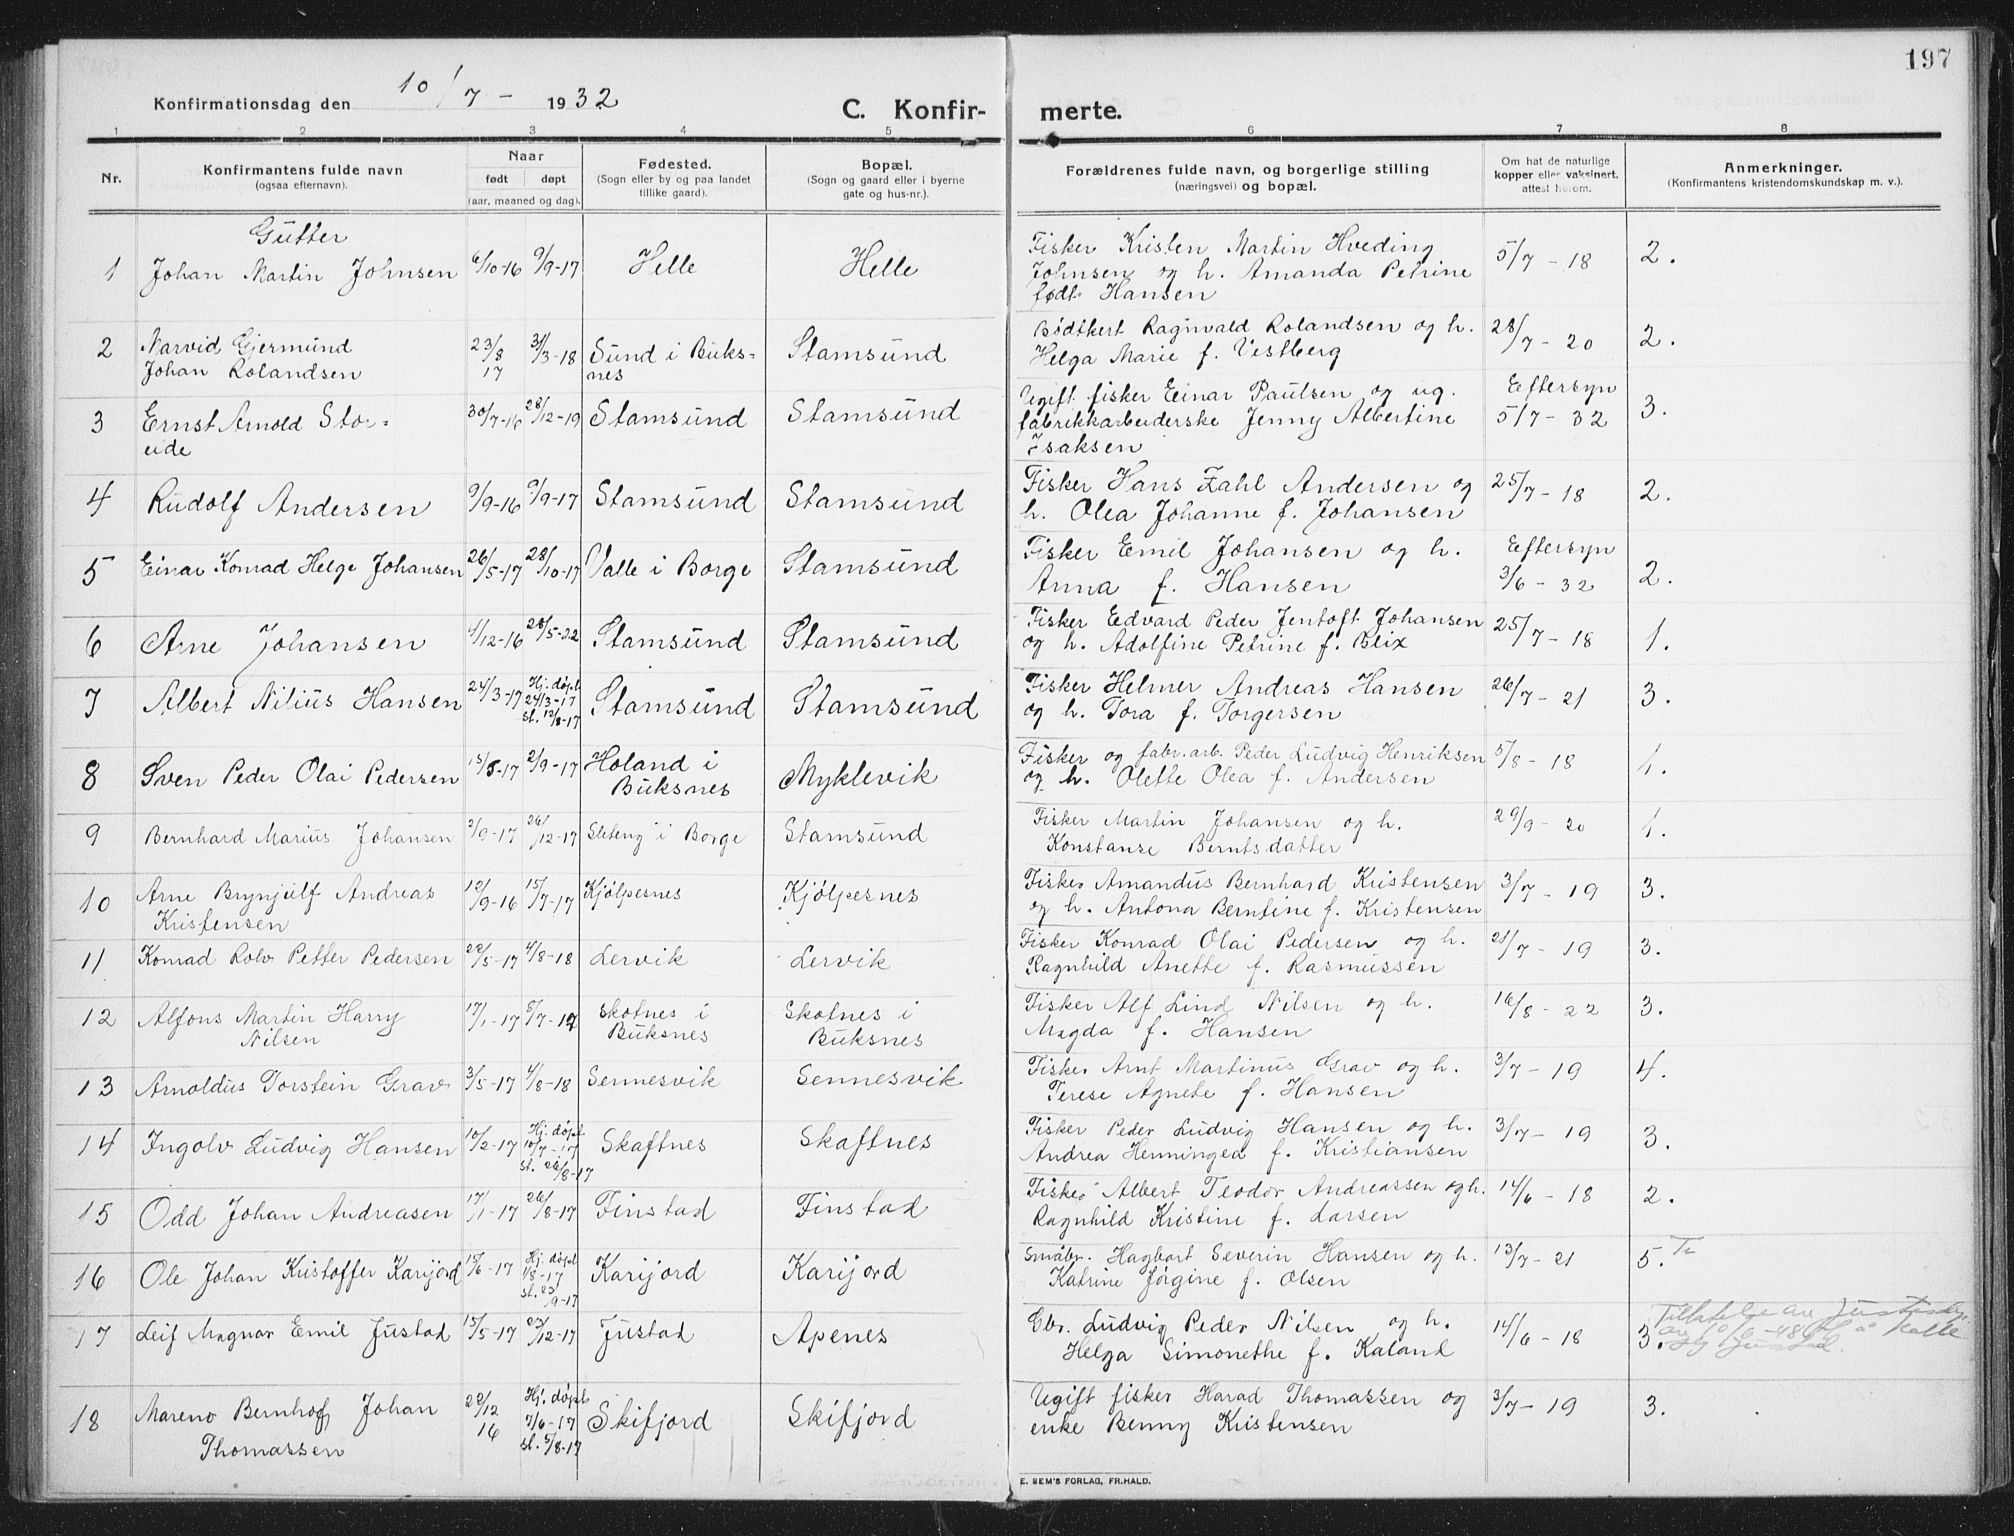 197
Konfirmationsdag den 10/7 - 1932
C. Konfir- merte.
1 2 3 4 5 6 7 8
Nr.
Konfirmantens fulde navn
(ogsaa efternavn).
Naar
født døpt
(aar, maaned og dag).
Fødested.
(Sogn eller by og paa landet
tillike gaard).
Bopæl.
(Sogn og gaard eller i byerne
gate og hus-nr.).
Forældrenes fulde navn, og borgerlige stilling
(næringsvei) og bopæl.
Om hat de naturlige
kopper eller vaksinert,
attest herom.
Anmerkninger.
(Konfirmantens kristendomskundskap m. v.).
Gutter
1 Johan Martin Johnsen 6/10-16 9/9-17 Helle Helle
Fisker Kristen Martin Hveding
Johnsen og h. Amanda Petrine
født Hansen
5/7 - 18 2.
2 Narvid Gjermund
Johan Rolandsen
23/8
17
31/3-18 Sund i Buks=
nes
Stamsund
Bødtkert Raginvald Rolandsen og h.
Helga Marie f. Vestberg
28/7 - 20 2.
3 Ernst Arnold Stor=
eide
30/7-16 28/12-19 Stamsund Stamsund
Ugift fisker Einar Paulsen og ug.
fabrikkarbeiderske Jenny Albertine
Isaksen
Eftersyn
5/7 - 32 3.
4 Rudolf Andersen 9/9-16 9/9-17 Stamsund Stamsund
Fisker Hans Zahl Andersen og
h. Olea Johanne f. Johansen
25/7 - 18 2.
5 Einar Konrad Helge Johansen 26/5-17 28/10-17 Valle i Borge Stamsund
Fisker Emil Johansen og h.
Anna f. Hansen
Eftersyn
3/6 - 32 2.
6 Arne Johansen 4/12-16 28/5-22 Stamsund Stamsund
Fisker Edvard Peder Jentoft Johansen
og h. Adolfine Petrine f. Blix
25/7 - 18 1.
7 Albert Nilius Hansen 24/3-17 Hj. døpt
24/3-17
st. 12/8-17
Stamsund Stamsund
Fisker Helmer Andreas Hansen
og h. Tora f. Torgersen
26/7 - 21 3.
8 Sven Peder Olai Pedersen 15/5-17 2/9-17 Holand i
Buksnes
Myklevik
Fisker og fabr.arb. Peder Ludvig Henriksen
og h. Olette Olea f. Andersen
5/8 - 18 1.
9 Bernhard Marius Johansen 2/9-17 26/12-17 Sleteng i Borge Stamsund
Fisker Martin Johansen og h.
Konstanse Berntsdatter
29/9 - 20 1.
10 Arne Brynjulf Andreas
Kristensen
12/9-16 15/7-17 Kjølpesnes Kjølpesnes
Fisker Amandus Bernhard Kristensen
og h. Antona Berntine f. Kristensen
3/7 - 19 3.
11 Konrad Rolv Petter Pedersen 22/5-17 4/8-18 Lervik Lervik
Fisker Konrad Olai Pedersen og h.
Ragnhild Anette f. Rasmussen
21/7 - 19 3.
12 Alfons Martin Harry
Nilsen
17/1-17 8/7-17 Skotnes i
Buksnes
Skotnes i
Buksnes
Fisker Alf Lind Nilsen og h.
Magda f. Hansen
16/8 - 22 3.
13 Arnoldus Torstein Grav 3/5-17 4/8-18 Sennesvik Sennesvik
Fisker Arnt Martinus Grav og h.
Terese Agnete f. Hansen
3/7 - 19 4.
14 Ingolv Ludvig Hansen 10/2-17 Hj. døpt
10/7-17
st. 26/8-17
Skaftnes Skaftnes
Fisker Peder Ludvig Hansen og h.
Andrea Henningea f. Kristiansen
3/7 - 19 3.
15 Odd Johan Andreasen 17/1-17 26/8-17 Finstad Finstad
Fisker Albert Teodor Andreassen og h.
Ragnhild Kristine f. Larsen
14/6 - 18 2.
16 Ole Johan Kristoffer Karijord 15/6-17 Hj. døpt
1/8-17
st. 23/9-17
Karijord Karijord
Småbr. Hagbart Severin Hansen og h.
Katrine Jørgine f. Olsen
13/7 - 21 5.
17 Leif Magnar Emil Justad 15/5-17 23/12-17 Justad Apenes
Gbr. Ludvig Peder Nilsen og h.
Helga Simonethe f. Kaland
14/6 - 18 3.
18 Mareno Bernhof Johan
Thomassen
22/12
16
Hj. døpt
7/6-17
st. 5/8-17
Skifjord Skifjord
Ugift fisker Harad Thomassen og
enke Benny Kristensen
3/7 - 19 3.
E. SEM'S FORLAG, FR.HALD.